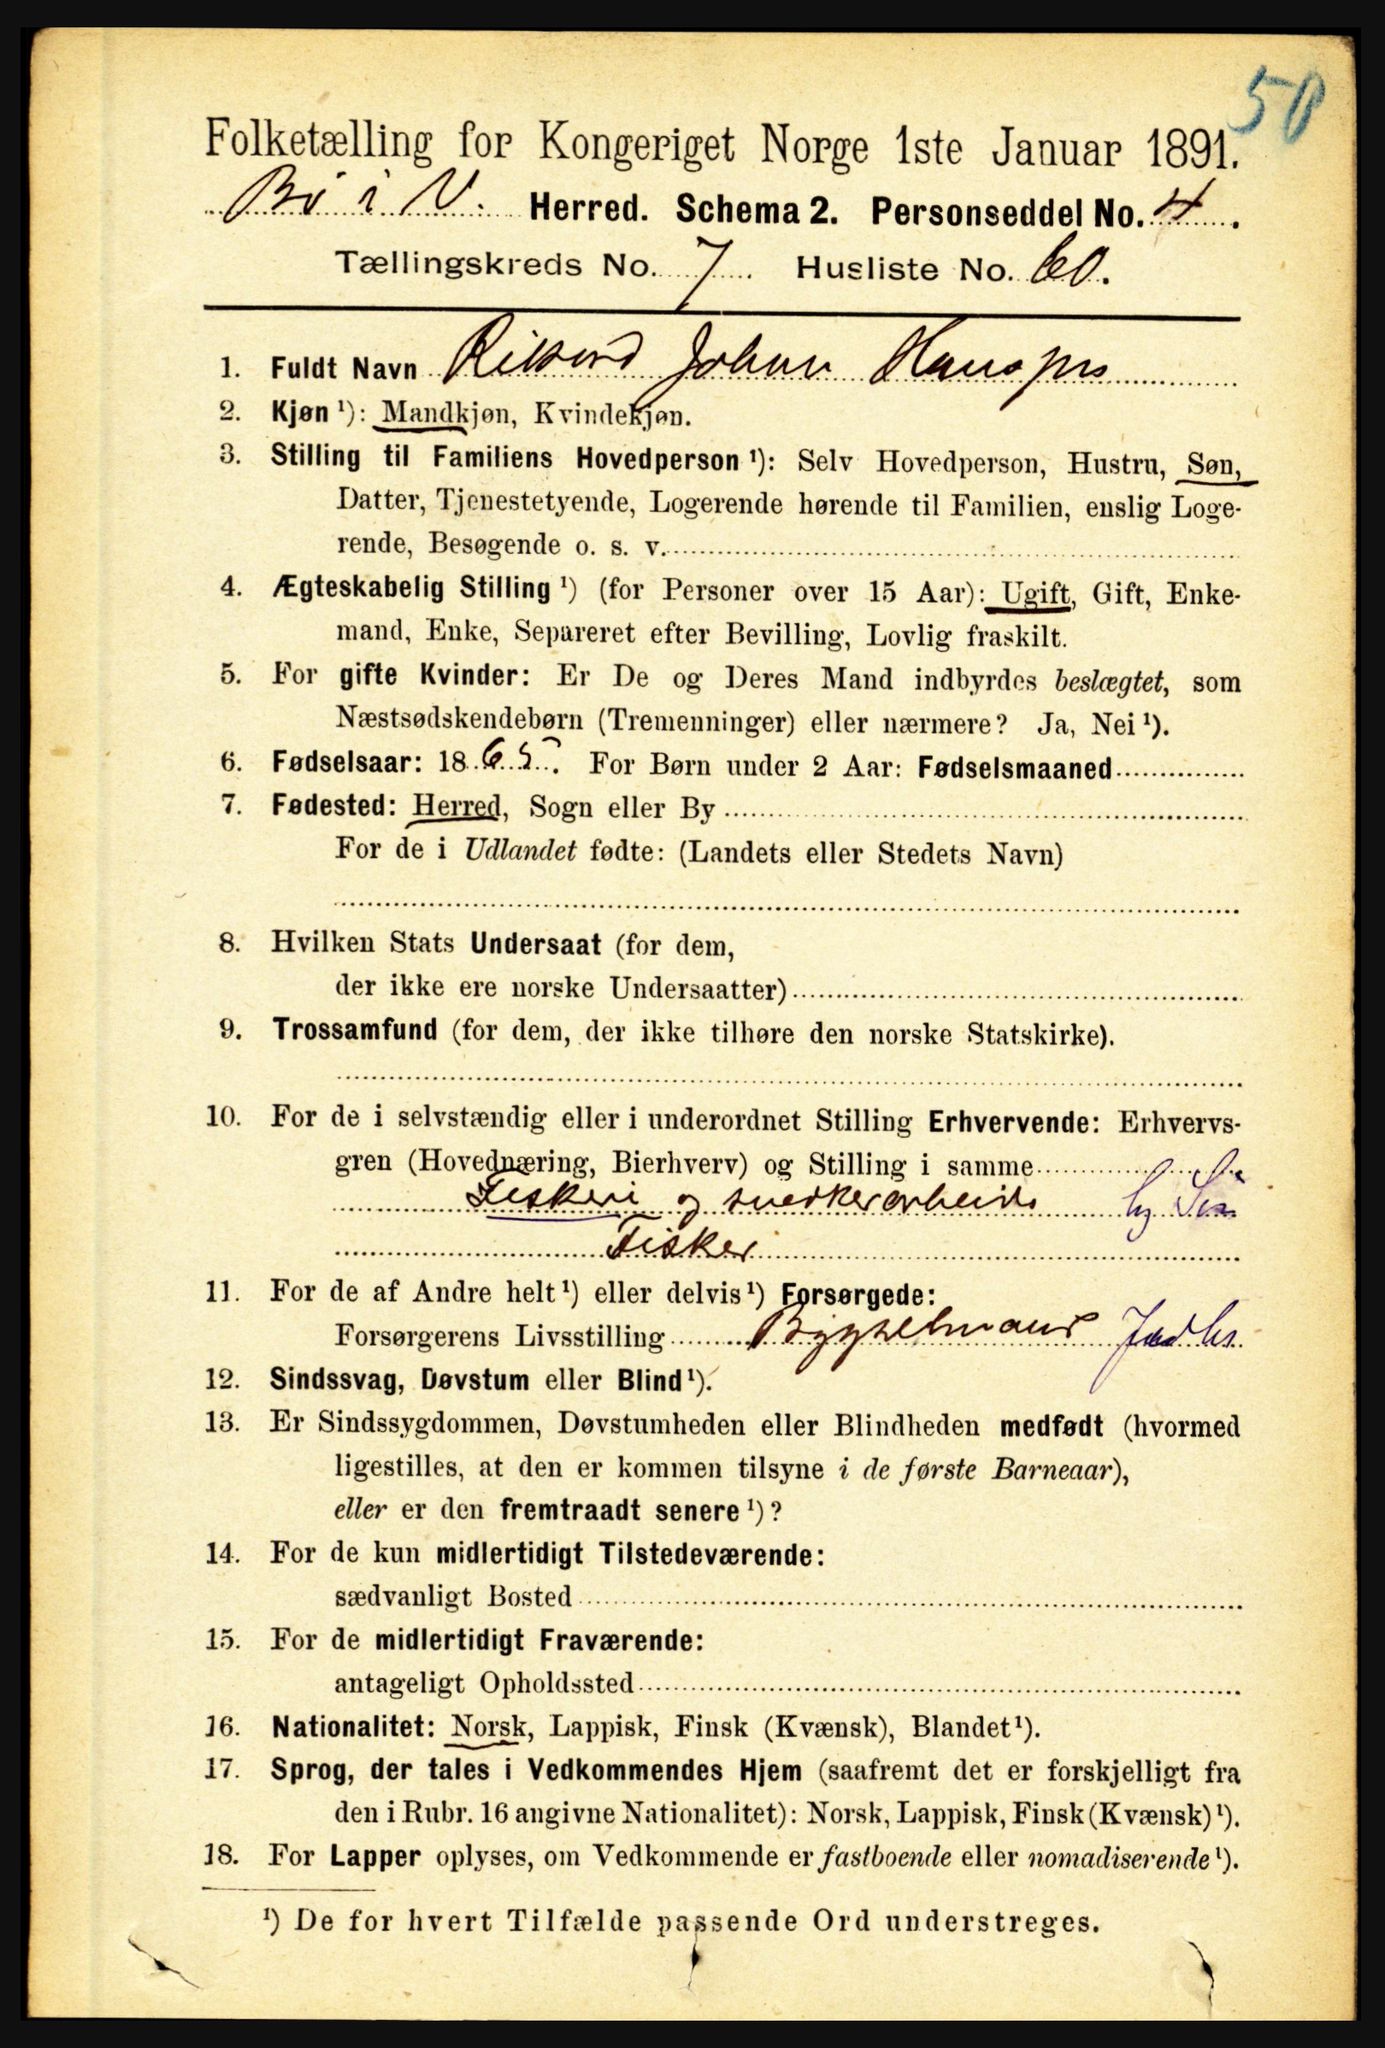 50
Folketælling for Kongeriget Norge 1ste Januar 1891.
Bø i V. Herred. Schema 2. Personseddel No. 4.
Tællingskreds No. 7. Husliste No. 60.
1. Fuldt Navn Rikard Johan Hanssen
2. Kjøn ¹): Mandkjøn, Kvindekjøn.
3. Stilling til Familiens Hovedperson ¹): Selv Hovedperson, Hustru, Søn,
Datter, Tjenestetyende, Logerende hørende til Familien, enslig Loge-
rende, Besøgende o. s. v.
4. Ægteskabelig Stilling ¹) (for Personer over 15 Aar): Ugift, Gift, Enke-
mand, Enke, Separeret efter Bevilling, Lovlig fraskilt.
5. For gifte Kvinder: Er De og Deres Mand indbyrdes beslægtet, som
Næstsødskendebørn (Tremenninger) eller nærmere? Ja, Nei ¹).
6. Fødselsaar: 1865. For Børn under 2 Aar: Fødselsmaaned
7. Fødested: Herred, Sogn eller By
For de i Udlandet fødte: (Landets eller Stedets Navn)
8. Hvilken Stats Undersaat (for dem,
der ikke ere norske Undersaatter)
9. Trossamfund (for dem, der ikke tilhøre den norske Statskirke).
10. For de i selvstændig eller i underordnet Stilling Erhvervende: Erhvervs-
gren (Hovednæring, Bierhverv) og Stilling i samme
Fiskeri og snedkerarbeide
Fisker
11. For de af Andre helt ¹) eller delvis ¹) Forsørgede:
Forsørgerens Livsstilling Bygselmand
12. Sindssvag, Døvstum eller Blind ¹).
13. Er Sindssygdommen, Døvstumheden eller Blindheden medfødt (hvormed
ligestilles, at den er kommen tilsyne i de første Barneaar),
eller er den fremtraadt senere ¹)?
14. For de kun midlertidigt Tilstedeværende:
sædvanligt Bosted
15. For de midlertidigt Fraværende:
antageligt Opholdssted
16. Nationalitet: Norsk, Lappisk, Finsk (Kvænsk), Blandet ¹).
17. Sprog, der tales i Vedkommendes Hjem (saafremt det er forskjelligt fra
den i Rubr. 16 angivne Nationalitet): Norsk, Lappisk, Finsk (Kvænsk) ¹).
18. For Lapper oplyses, om Vedkommende er fastboende eller nomadiserende ¹).
¹) De for hvert Tilfælde passende Ord understreges.